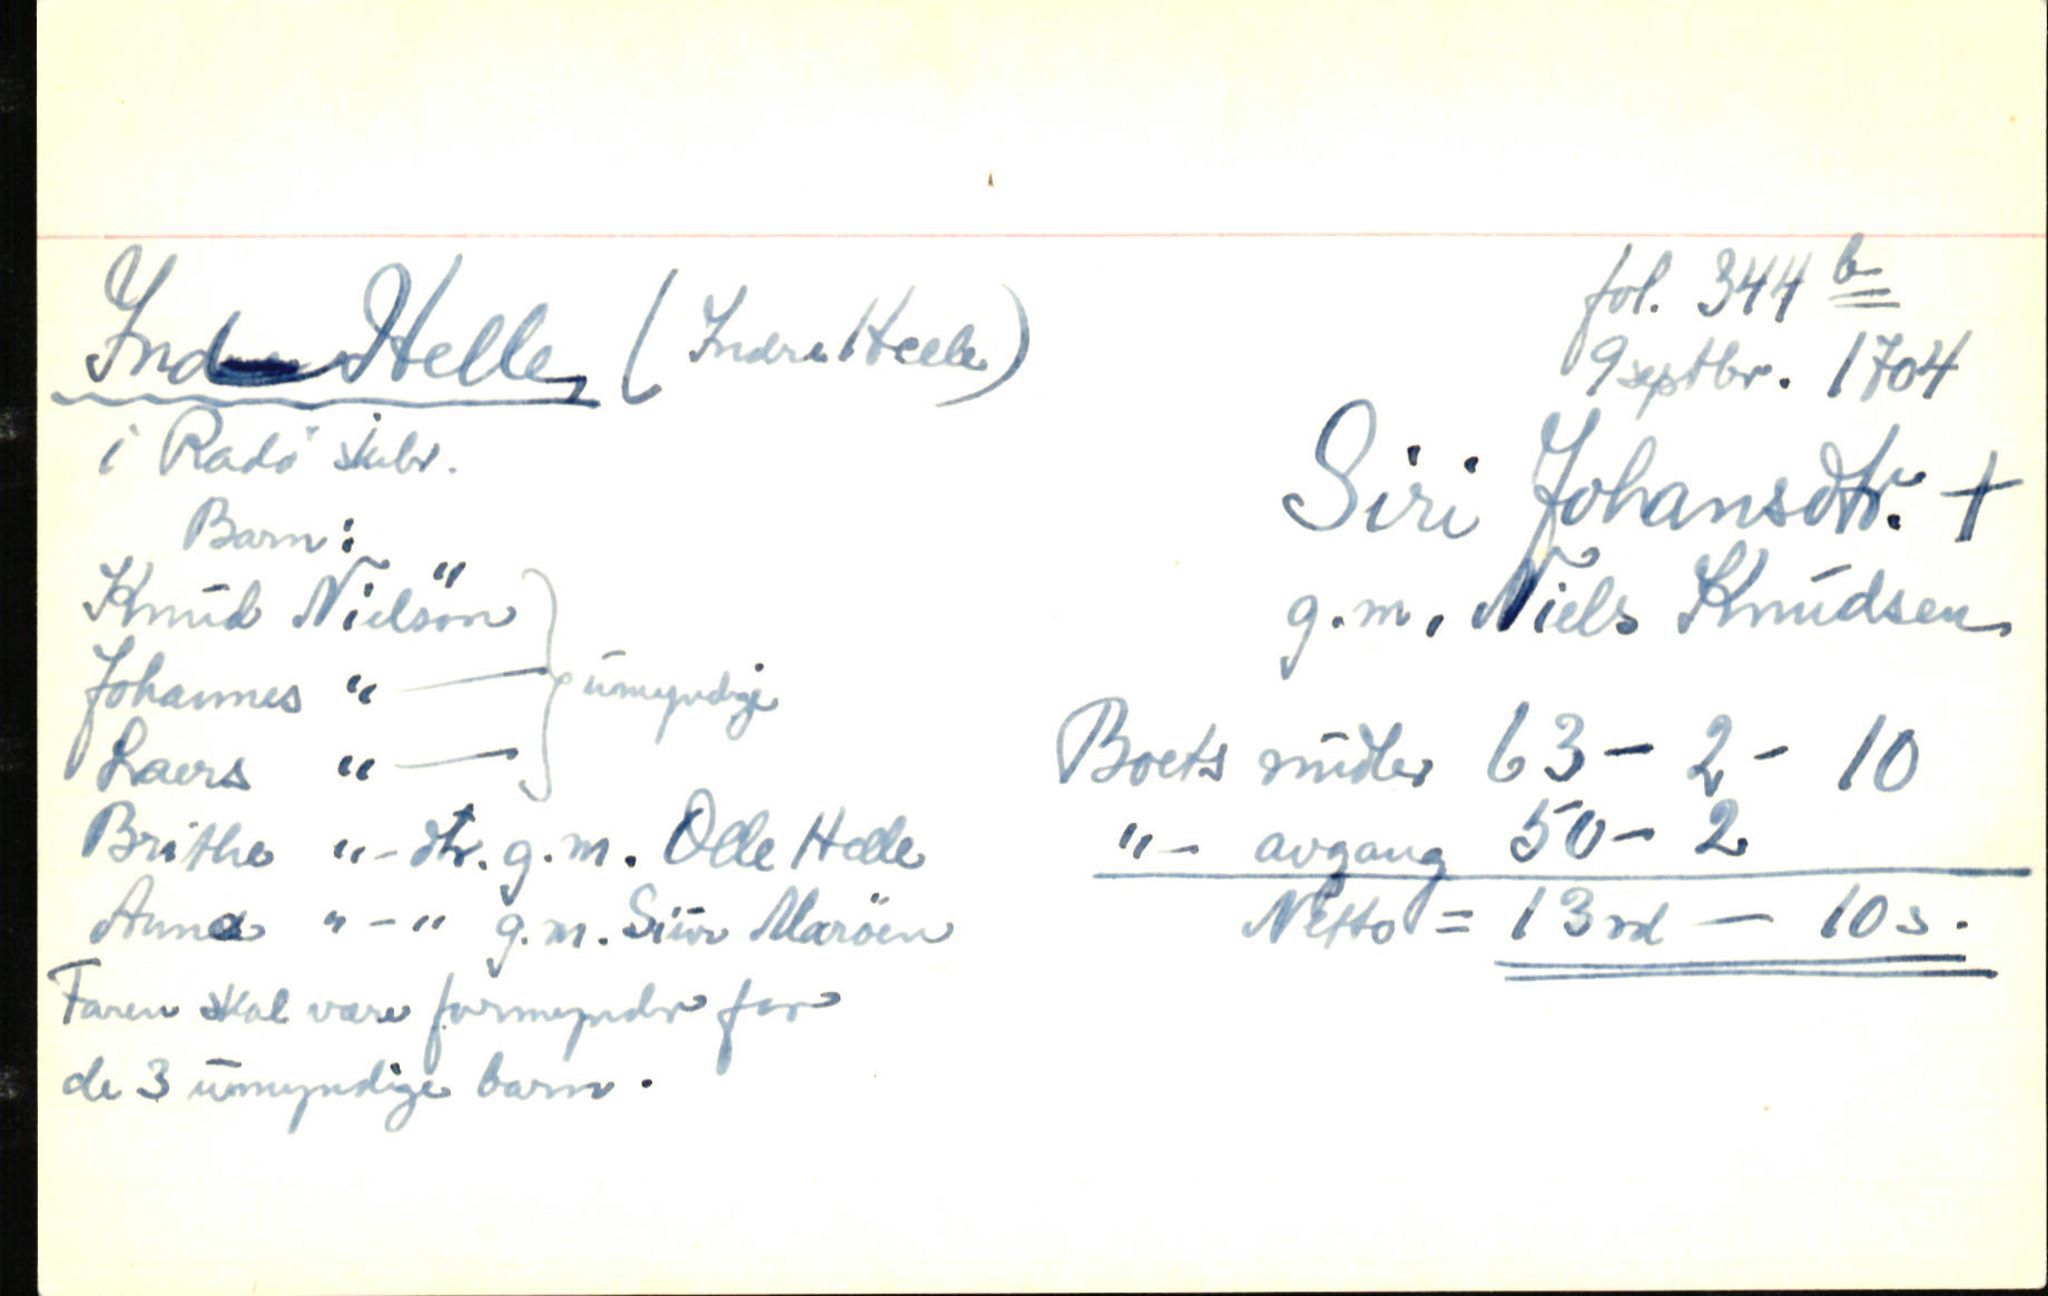 Indre Helle (Indre Helle)
i Radö skbr.
Barn:
Knud Nielsön
Johannes " — } umyndige
Laers " —
Brithe " - dtr. g.m. Olle Helle
Anna " - " g.m. Siur Maröen
Faren skal være formynder for
de 3 umyndige barn.
fol. 344 b
9 septbr. 1704
Siri Johansdtr. +
g.m. Niels Knudsen
Boets midler 63 - 2 - 10
" - avgang 50 - 2
Netto = 13 rd — 10 s.